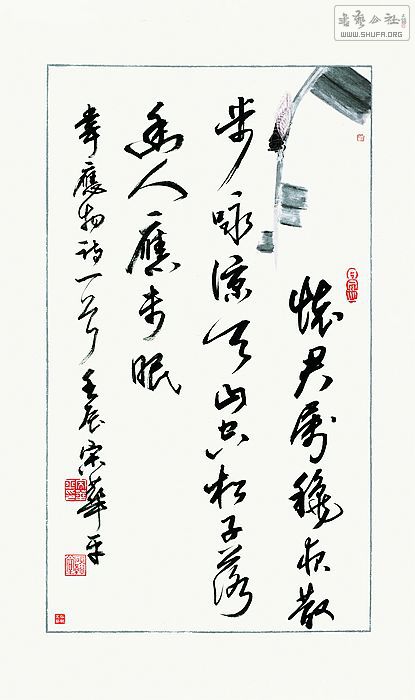 怀君属秋夜散
步咏凉天山空松子落
幽人应未眠
韦应物诗一首 壬辰 宋华平
书艺公社
WWW.SHUFA.ORG